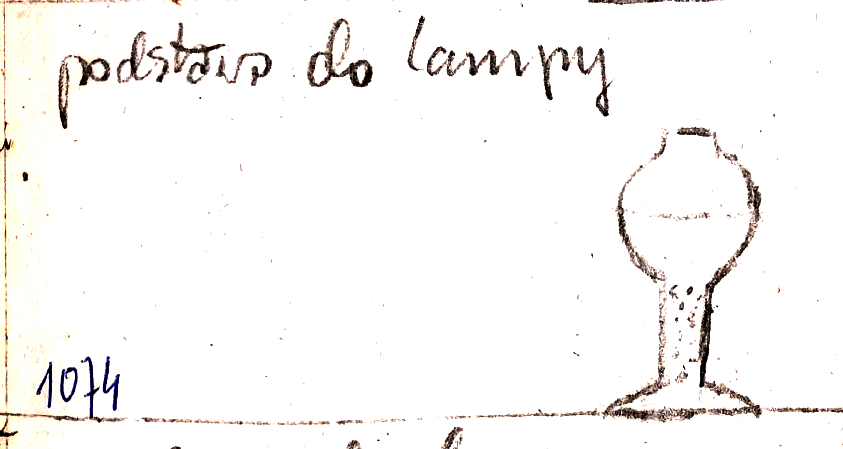 podstawa do lampy
1074